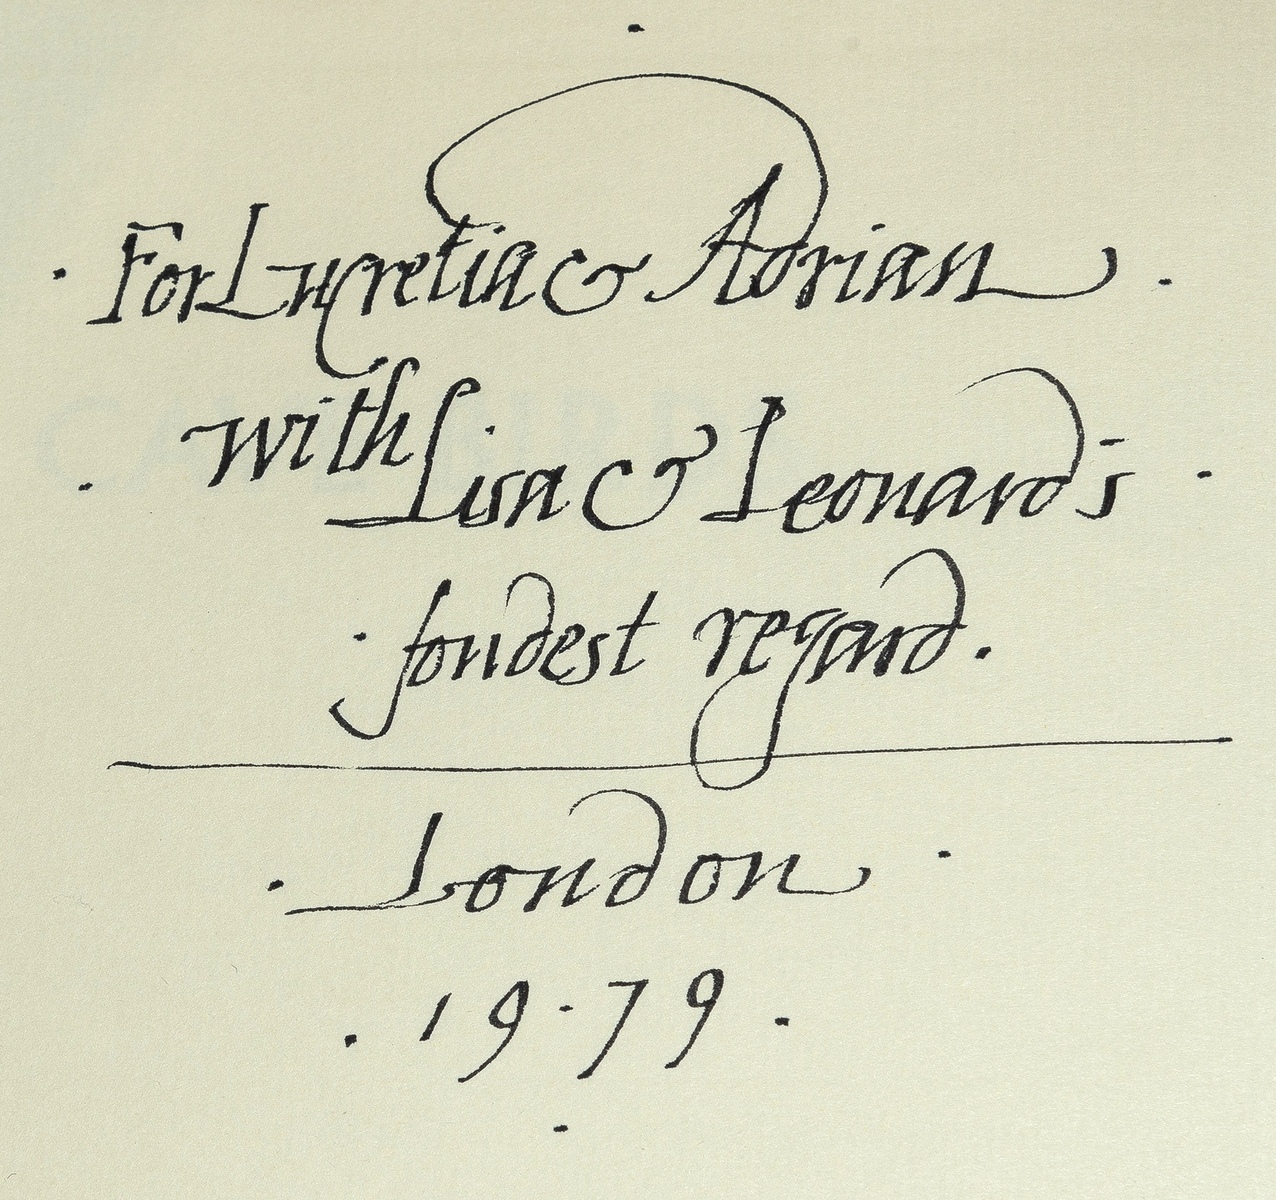 · For Lucretia & Adrian ·
· with Lisa & Leonard's ·
· fondest regard.
· London ·
· 19·79 ·